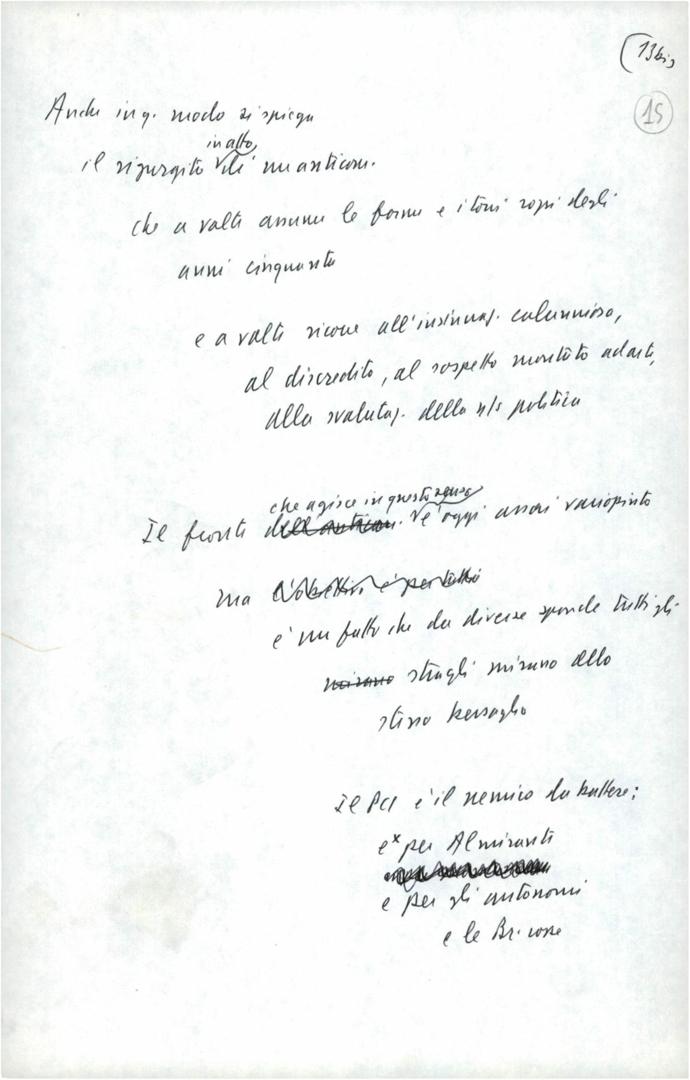 (13bis
15
Anche in q. modo si spiega
in atto,
il rigurgito di un anticom.
che a volte assume le forme e i toni rozzi degli
anni cinquanta
e a volte ricorre all'insinuaz. calunniosa,
al discredito, al sospetto montato ad arte,
alla svalutaz. della n/s politica
che agisce in questo senso
Il fronte dell'anticom. è oggi assai variopinto
ma l'obettivo è per tutti
è un fatto che da diverse sponde tutti gli
mirano strali mirano allo
stesso bersaglio
Il PCI è il nemico da battere;
e x per Almirante
e per gli autonomi
e le Br. rosse